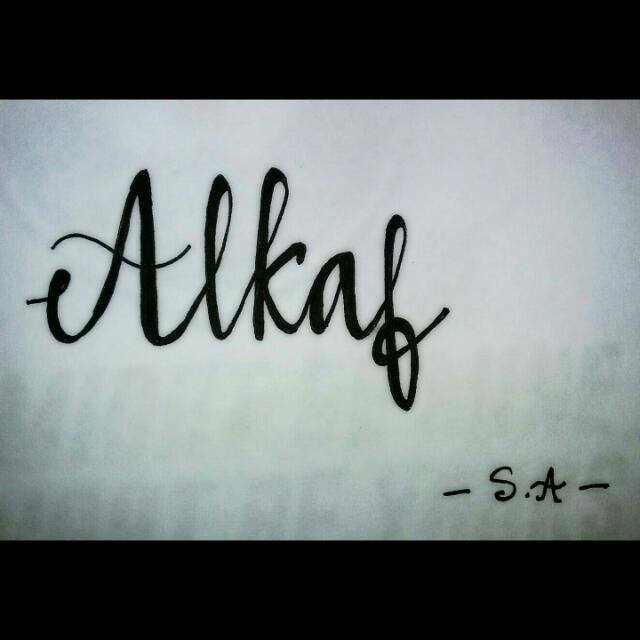 Alkaf
- S.A -